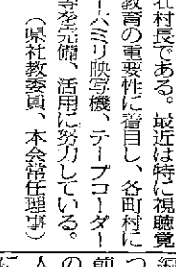 社村長である。最近は特に視聴覚
教育の重要性に着目し、各町村に
ーハミリ映写機、テープコーダー
等を完備、活用に努力している。
(県社教委員、本会常任理事)